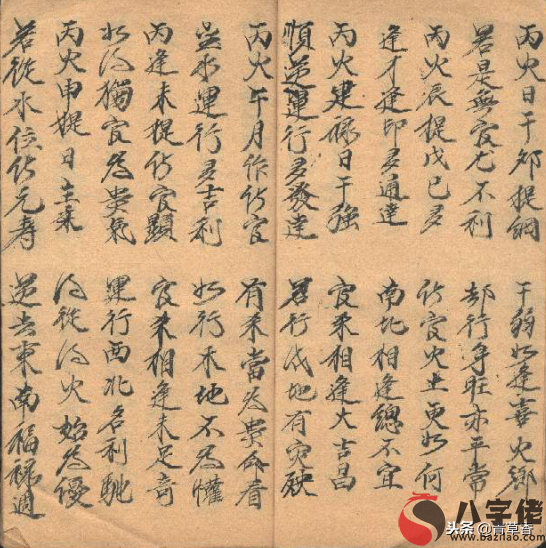 丙火日干卯提綱
干弱如逢喜火鄉
若是無官尤不利
却行身旺亦平常
丙火辰提戊己多
伤官火土更如何
逢才逢印多通達
南北相逢總不宜
丙火建祿日干強
官杀相逢大吉昌
順逆運行多發達
若行戊地有灾殃
丙火午月作伤官
有杀當为貴命看
水運行多吉利
如行木地不为懽
丙逢未提伤官顯
官杀相逢未足奇
如得獨官为貴氣
運行西北名利馳
丙火申提日主柔
得從得火始为優
若從水位伤元寿
逆去東南福祿週
八字佬
头条 @青草香
www.bazilao.com